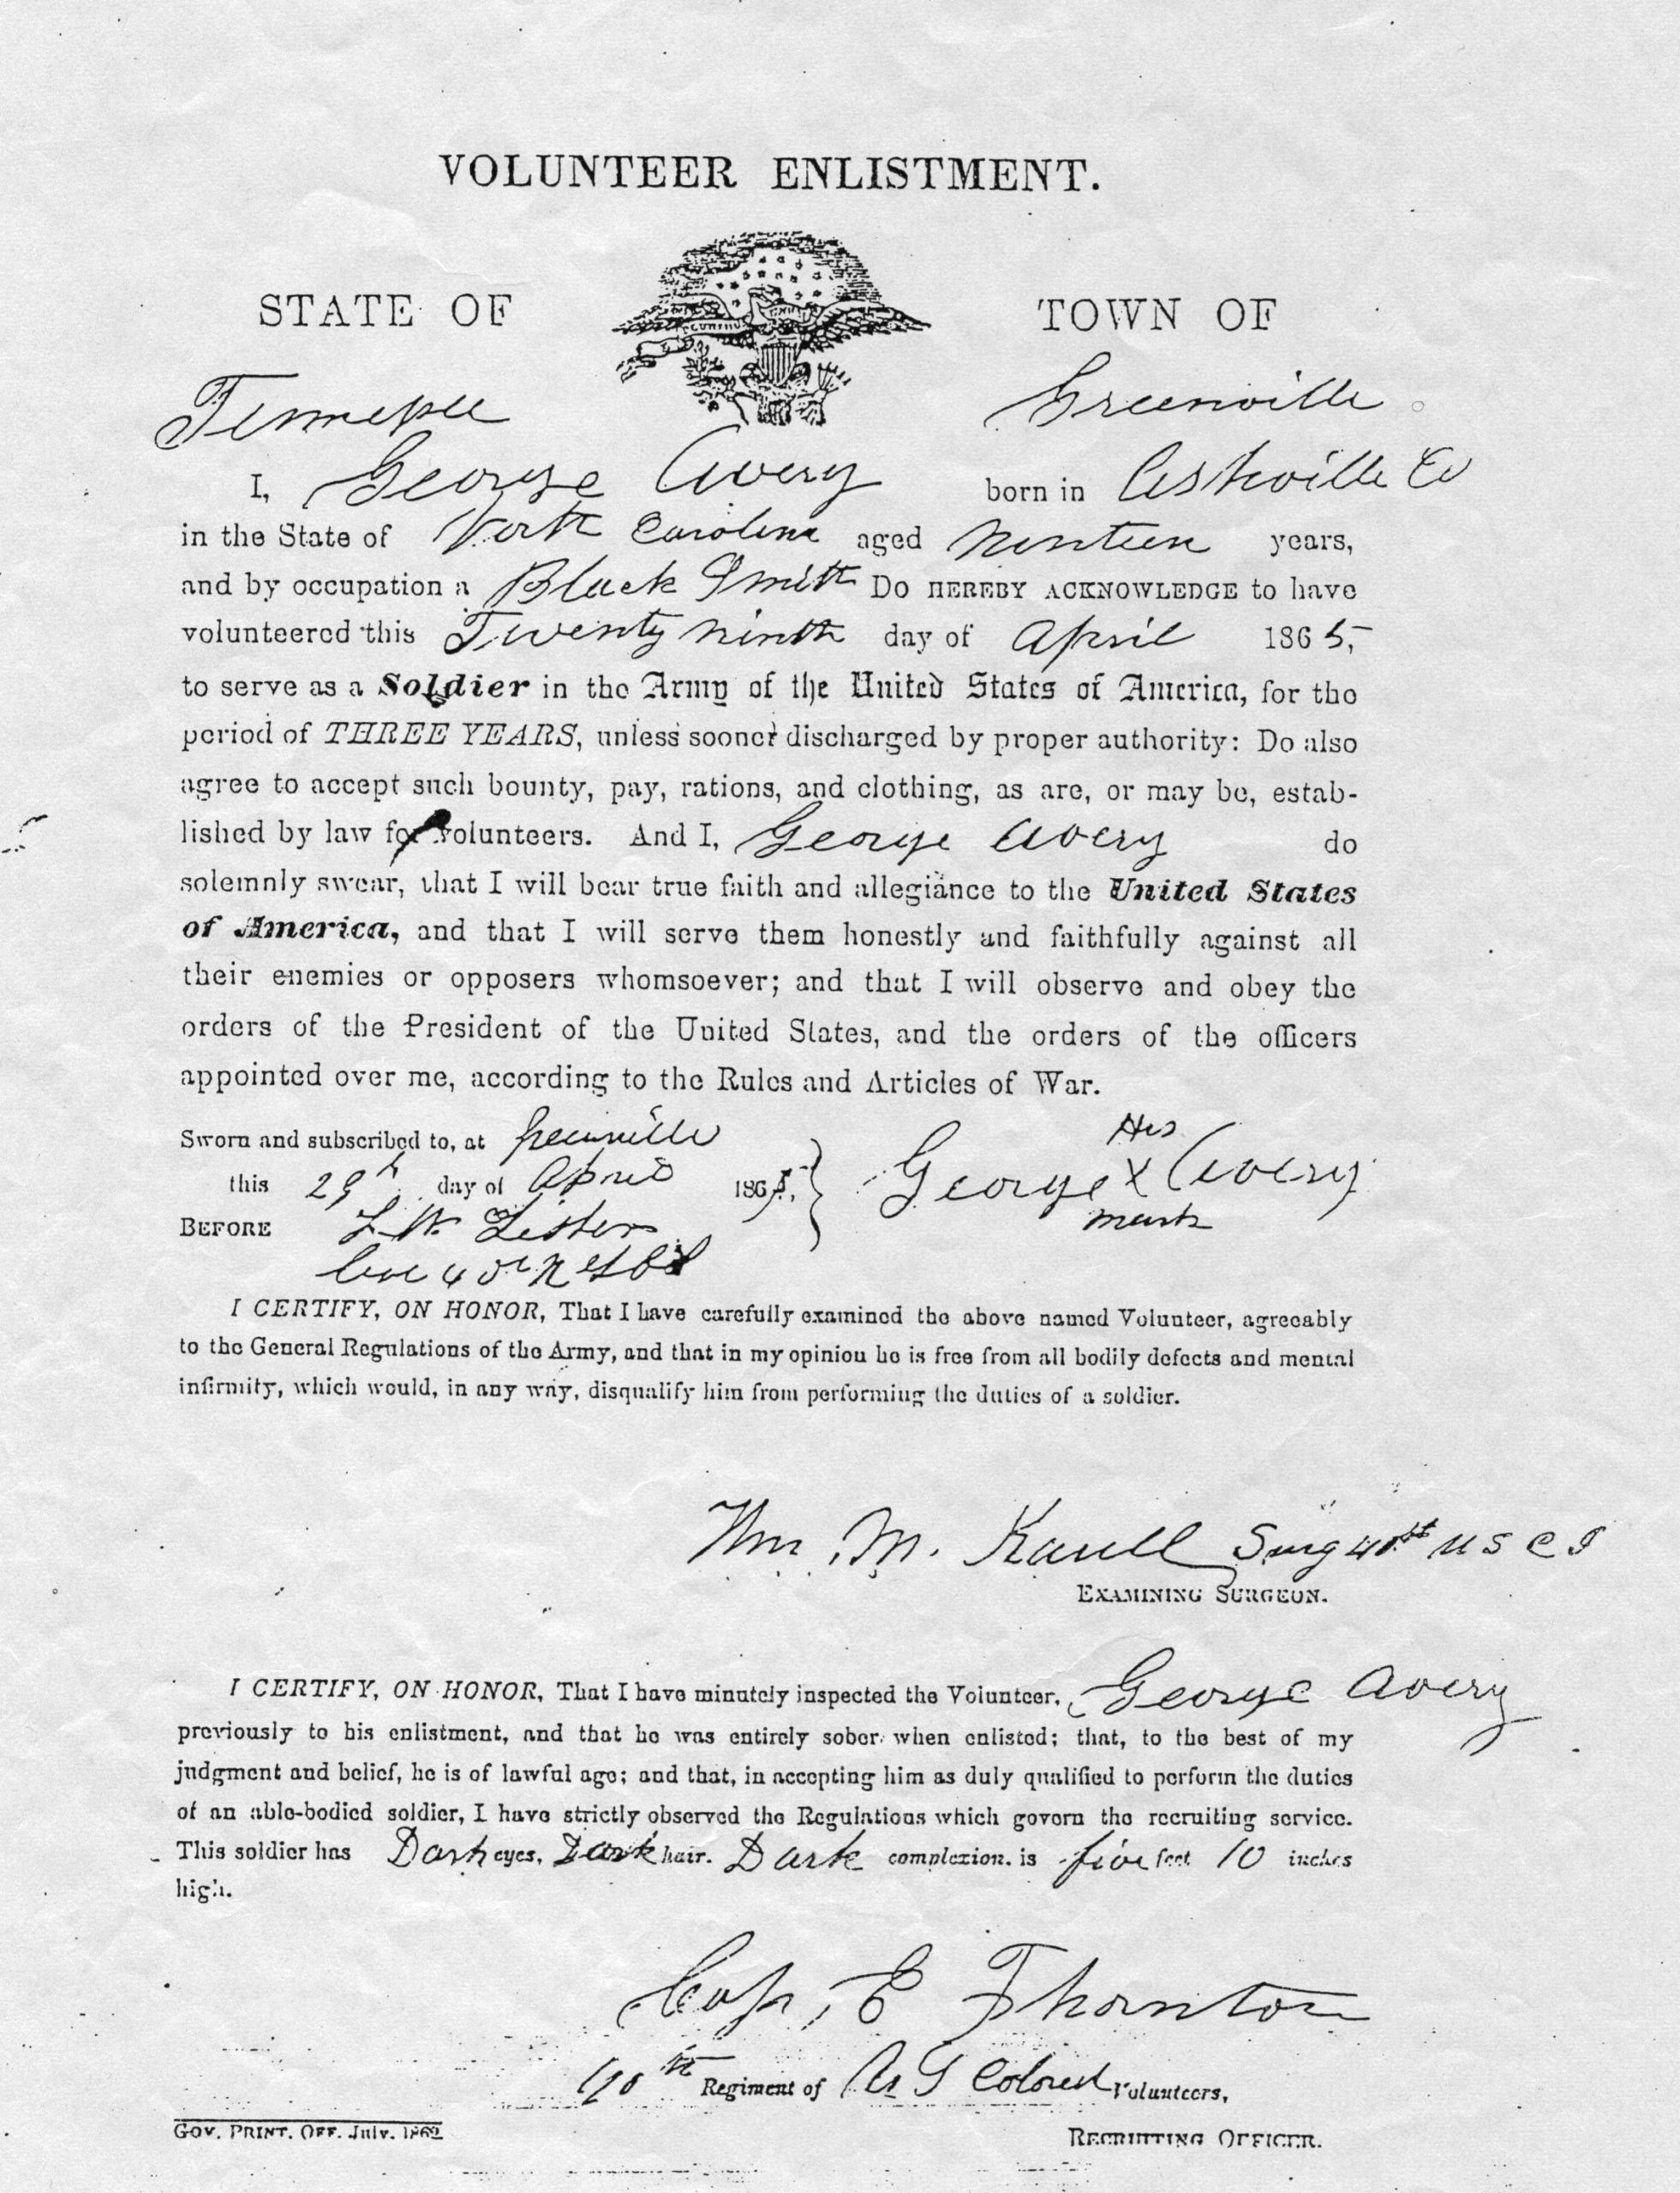 VOLUNTEER ENLISTMENT.
STATE OF TOWN OF
Tennessee Greenville
I, George Avery born in Ashville Co
in the State of North Carolina aged Ninteen years,
and by occupation a Black Smith DO HEREBY ACKNOWLEDGE to have
volunteered this Twenty ninth day of April 1865,
to serve as a Soldier in the Army of the United States of America, for the
period of THREE YEARS, unless sooner discharged by proper authority: Do also
agree to accept such bounty, pay, rations, and clothing, as are, or may be, estab-
lished by law for volunteers. And I, George Avery do
solemnly swear, that I will bear true faith and allegiance to the United States
of America, and that I will serve them honestly and faithfully against all
their enemies or opposers whomsoever; and that I will observe and obey the
orders of the President of the United States, and the orders of the officers
appointed over me, according to the Rules and Articles of War.
Sworn and subscribed to, at Greenville
this 29th day of April 1865,
His
George X Avery
mark
BEFORE L. W. Lister
I CERTIFY, ON HONOR, That I have carefully examined the above named Volunteer, agreeably
to the General Regulations of the Army, and that in my opinion he is free from all bodily defects and mental
infirmity, which would, in any way, disqualify him from performing the duties of a soldier.
Wm. M. Surg 40th U S C I
EXAMINING SURGEON.
I CERTIFY, ON HONOR, That I have minutely inspected the Volunteer, George Avery
previously to his enlistment, and that he was entirely sober when enlisted; that, to the best of my
judgment and belief, he is of lawful age; and that, in accepting him as duly qualified to perform the duties
of an able-bodied soldier, I have strictly observed the Regulations which govern the recruiting service.
This soldier has Dark eyes, Dark hair, Dark complexion, is five feet 10 inches
high.
Capt. E Thornton
40th Regiment of U S Colored Volunteers,
GOV. PRINT. OFF. July, 1862
RECRUITING OFFICER.